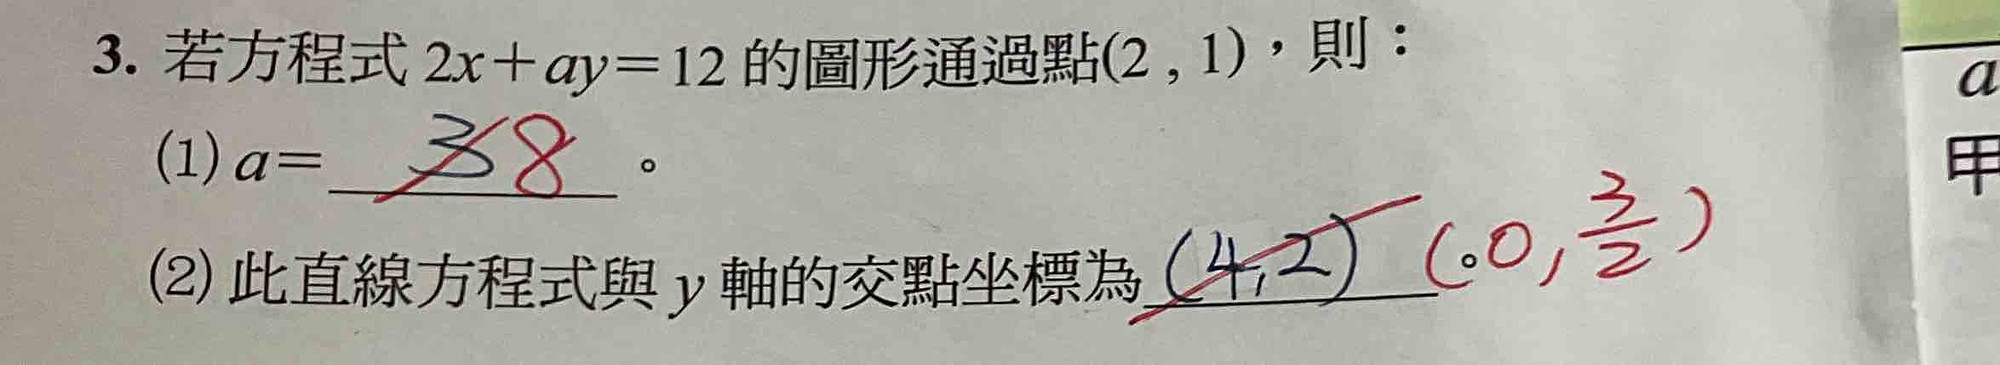 3. 若方程式 2x+ay=12 的圖形通過點(2,1),則:
a
(1) a= 3 8 。
甲
(2) 此直線方程式與 y 軸的交點坐標為 (4,2) 。 (0, 3/2)